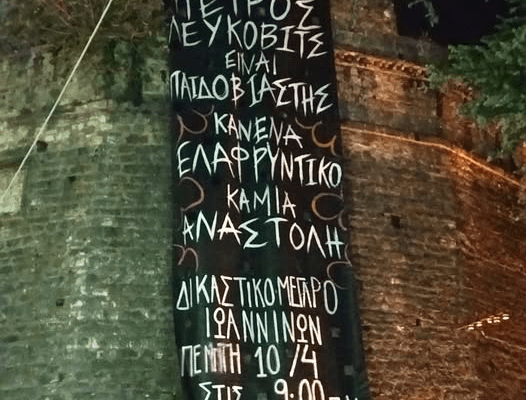 ΠΕΤΡΟΣ
ΛΕΥΚΟΒΙΤΣ
ΕΙΝΑΙ
ΠΑΙΔΟΒΙΑΣΤΗΣ
ΚΑΝΕΝΑ
ΕΛΑΦΡΥΝΤΙΚΟ
ΚΑΜΙΑ
ΑΝΑΣΤΟΛΗ
ΔΙΚΑΣΤΙΚΟ ΜΕΓΑΡΟ
ΙΩΑΝΝΙΝΩΝ
ΠΕΜΠΤΗ 10/4
ΣΤΙΣ 9:00